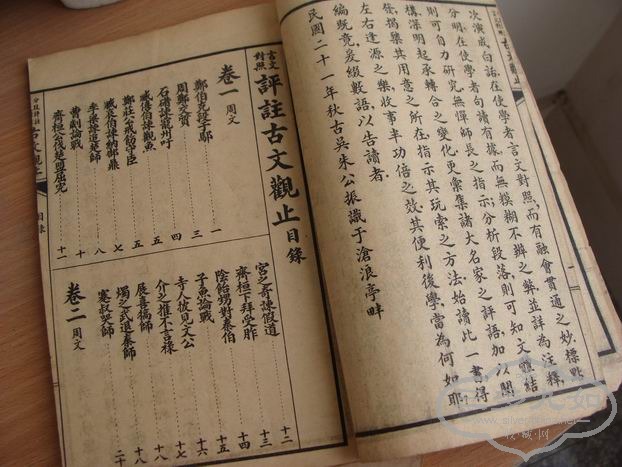 次演成白話.在使學者言文對照,而有融會貫通之妙.標點
分明.在使學者句讀有據.而無模糊不辨之弊.並詳為注釋,
則可自力研究.無憚師長之指示;分析段落.則可知文體結
構.深明起承轉合之變化.更彙集諸大名家之評語.加以闡
發,揭櫫其用意之所在.指示其玩索之方法.始讀此一書.得
左右逢源之樂.收事半功倍之效.其便利後學.當為何如耶?
編既竟,爰綴數語.以告讀者.
民國二十一年秋古吳朱公振識于滄浪亭畔
言文對照 評註古文觀止目錄
卷一 周文
鄭伯克段于鄢 一
周鄭交質 三
石碏諫寵州吁 四
臧僖伯諫觀魚 五
鄭莊公戒飭守臣 五
臧哀伯諫納郜鼎 七
季梁諫追楚師 八
曹劌論戰 十
齊桓公伐楚盟屈完 十一
宮之奇諫假道 十二
齊桓下拜受胙 十三
陰飴甥對秦伯 十四
子魚論戰 十五
寺人披見文公 十六
介之推不言祿 十七
展喜犒師 十八
燭之武退秦師 十八
蹇叔哭師 二十
卷二 周文
古文觀止
目錄